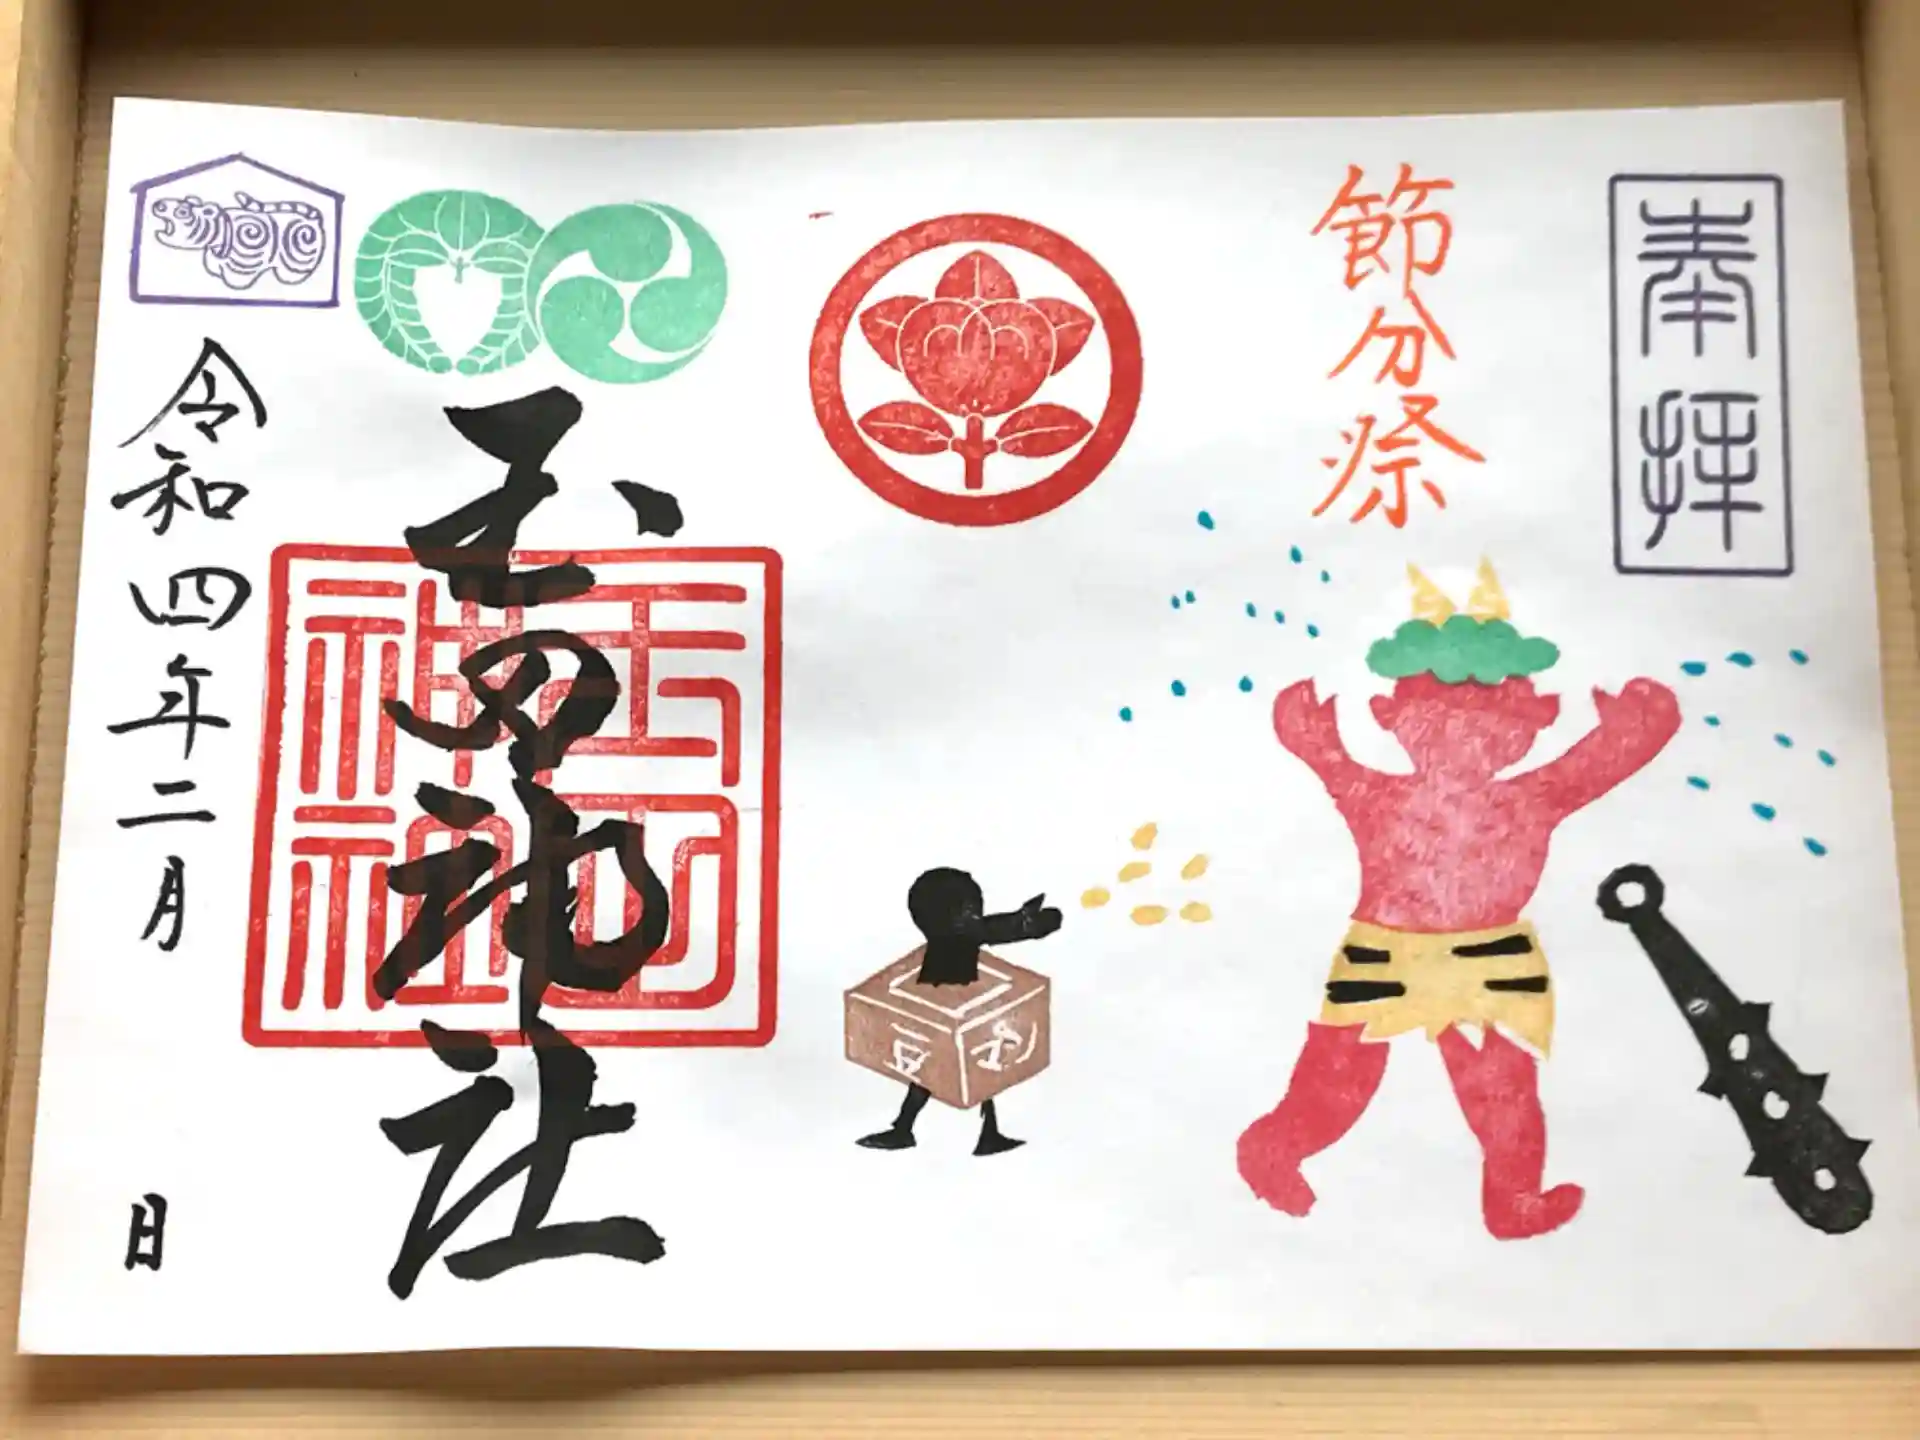 奉拝
節分祭
豆
玉田神社
玉田
神社
令和四年二月 日